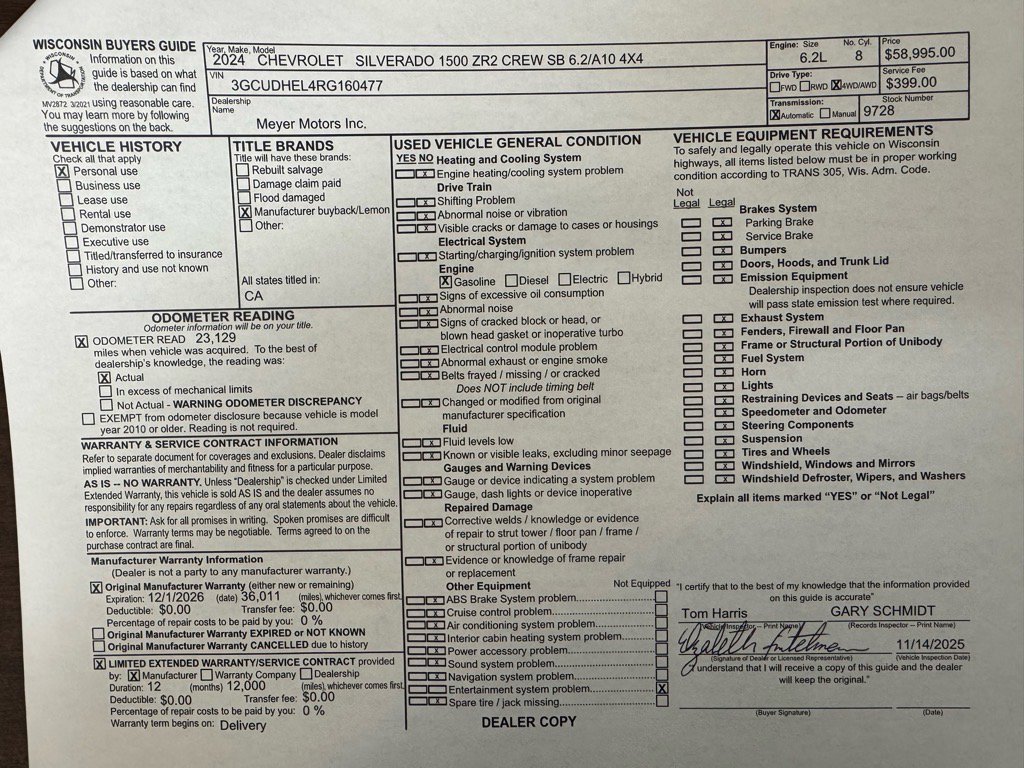 WISCONSIN BUYERS GUIDE
Information on this
guide is based on what
the dealership can find
MV2872 3/2021 using reasonable care.
You may learn more by following
the suggestions on the back.
Year, Make, Model
2024 CHEVROLET SILVERADO 1500 ZR2 CREW SB 6.2/A10 4X4
VIN
3GCUDHEL4RG160477
Dealership
Name
Meyer Motors Inc.
Engine: Size No. Cyl.
6.2L 8
Price
$58,995.00
Drive Type:
FWD RWD X 4WD/AWD
Service Fee
$399.00
Transmission:
X Automatic Manual
Stock Number
9728
VEHICLE HISTORY
Check all that apply
X Personal use
Business use
Lease use
Rental use
Demonstrator use
Executive use
Titled/transferred to insurance
History and use not known
Other:
TITLE BRANDS
Title will have these brands:
Rebuilt salvage
Damage claim paid
Flood damaged
X Manufacturer buyback/Lemon
Other:
All states titled in:
CA
ODOMETER READING
Odometer information will be on your title.
X ODOMETER READ 23,129
miles when vehicle was acquired. To the best of
dealership's knowledge, the reading was:
X Actual
In excess of mechanical limits
Not Actual - WARNING ODOMETER DISCREPANCY
EXEMPT from odometer disclosure because vehicle is model
year 2010 or older. Reading is not required.
WARRANTY & SERVICE CONTRACT INFORMATION
Refer to separate document for coverages and exclusions. Dealer disclaims
implied warranties of merchantability and fitness for a particular purpose.
AS IS -- NO WARRANTY. Unless "Dealership" is checked under Limited
Extended Warranty, this vehicle is sold AS IS and the dealer assumes no
responsibility for any repairs regardless of any oral statements about the vehicle.
IMPORTANT: Ask for all promises in writing. Spoken promises are difficult
to enforce. Warranty terms may be negotiable. Terms agreed to on the
purchase contract are final.
Manufacturer Warranty Information
(Dealer is not a party to any manufacturer warranty.)
X Original Manufacturer Warranty (either new or remaining)
Expiration: 12/1/2026 (date) 36,011 (miles), whichever comes first
Deductible: $0.00 Transfer fee: $0.00
Percentage of repair costs to be paid by you: 0 %
Original Manufacturer Warranty EXPIRED or NOT KNOWN
Original Manufacturer Warranty CANCELLED due to history
X LIMITED EXTENDED WARRANTY/SERVICE CONTRACT provided
by: X Manufacturer Warranty Company Dealership
Duration: 12 (months) 12,000 (miles), whichever comes first.
Deductible: $0.00 Transfer fee: $0.00
Percentage of repair costs to be paid by you: 0 %
Warranty term begins on: Delivery
USED VEHICLE GENERAL CONDITION
YES NO Heating and Cooling System
X Engine heating/cooling system problem
Drive Train
X Shifting Problem
X Abnormal noise or vibration
X Visible cracks or damage to cases or housings
Electrical System
X Starting/charging/ignition system problem
Engine
X Gasoline Diesel Electric Hybrid
X Signs of excessive oil consumption
X Abnormal noise
X Signs of cracked block or head, or
blown head gasket or inoperative turbo
X Electrical control module problem
X Abnormal exhaust or engine smoke
X Belts frayed / missing / or cracked
Does NOT include timing belt
X Changed or modified from original
manufacturer specification
Fluid
X Fluid levels low
X Known or visible leaks, excluding minor seepage
Gauges and Warning Devices
X Gauge or device indicating a system problem
X Gauge, dash lights or device inoperative
Repaired Damage
X Corrective welds / knowledge or evidence
of repair to strut tower / floor pan / frame /
or structural portion of unibody
X Evidence or knowledge of frame repair
or replacement
Other Equipment Not Equipped
X ABS Brake System problem
X Cruise control problem
X Air conditioning system problem
X Interior cabin heating system problem
X Power accessory problem
X Sound system problem
X Navigation system problem
X Entertainment system problem X
X Spare tire / jack missing
DEALER COPY
VEHICLE EQUIPMENT REQUIREMENTS
To safely and legally operate this vehicle on Wisconsin
highways, all items listed below must be in proper working
condition according to TRANS 305, Wis. Adm. Code.
Not
Legal Legal
Brakes System
X Parking Brake
X Service Brake
X Bumpers
X Doors, Hoods, and Trunk Lid
X Emission Equipment
Dealership inspection does not ensure vehicle
will pass state emission test where required.
X Exhaust System
X Fenders, Firewall and Floor Pan
X Frame or Structural Portion of Unibody
X Fuel System
X Horn
X Lights
X Restraining Devices and Seats – air bags/belts
X Speedometer and Odometer
X Steering Components
X Suspension
X Tires and Wheels
X Windshield, Windows and Mirrors
X Windshield Defroster, Wipers, and Washers
Explain all items marked "YES" or "Not Legal"
"I certify that to the best of my knowledge that the information provided
on this guide is accurate"
Tom Harris GARY SCHMIDT
(Vehicle Inspector – Print Name) (Records Inspector – Print Name)
11/14/2025
(Signature of Dealer or Licensed Representative) (Vehicle Inspection Date)
"I understand that I will receive a copy of this guide and the dealer
will keep the original."
(Buyer Signature) (Date)